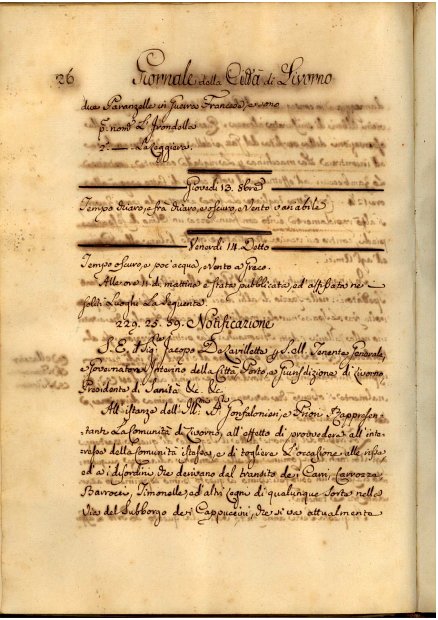 26 Giornale della Città di Livorno
due Paranzelle in Guerra Francesi, e sono
P. nomᵃ L'Irondella
2. — La Leggiera
Giovedì 13. 8bre
Tempo chiaro, e frà chiaro, e oscuro, e Vento variabile
Venerdì 14. Detto
Tempo oscuro, e poc'acqua, e Vento a Greco.
Alle ore 11. di mattina è stata pubblicata, ed affissata ne
soliti Luoghi La seguente.
229. 25. 59. Notificazione
S. E. il Sigʳ Jacopo De Lavillette Ten.te Generale,
e Governatore Interino della Città Porto, e Giurisdizione di Livorno,
Presidente di Sanità &c. &c.
All'istanze dell' Ill.mi SS.ri Gonfalonieri, e Priori Rappresen-
tanti La Comunità di Livorno, all'effetto di provvedere all'inte-
resse della Comunità istessa, e di togliere L'occasione alle risse
ed a i disordini che derivano dal transito dei Carri, Carrozze
Barrocci, Timonelle, ed altri Legni di qualunque sorta nella
Via del Subborgo dei Cappuccini, che si va attualmente